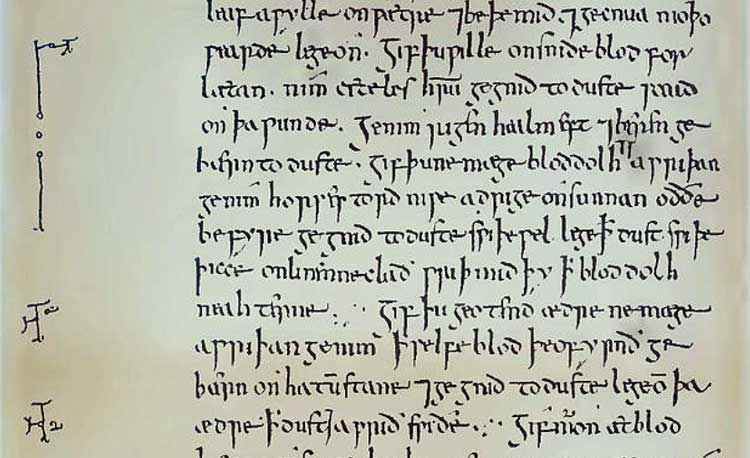 leaf apylle on pætre ⁊ beþe mid ⁊ gecnua moþo
pearde lege on̄. Gif þu pille on snide blod for
lætan. nim ceteles hrū gegnid to dufte scead
on þa punde. Genim rigen healm eft ⁊ beren ge
bærn to dufte. gif þu ne mæge blod dolh appiþan
genim horses tord nipe adrige on sunnan oððe
be fyre gegnid to dufte spiþe pel. lege ꝥ duft spiþe
þicce on linenne clað priþ mid þy ꝥ blod dolh
neaht terne .,. Gif þu geotend ædre ne mæge
appiþan genim ꝥ selfe blod þe ofyrnð ge
bærn on hatum stane ⁊ gegnid to dufte lege on̄ þa
ædre ꝥ duft ⁊ apriþ spiðe .,. Gif mon æt blod